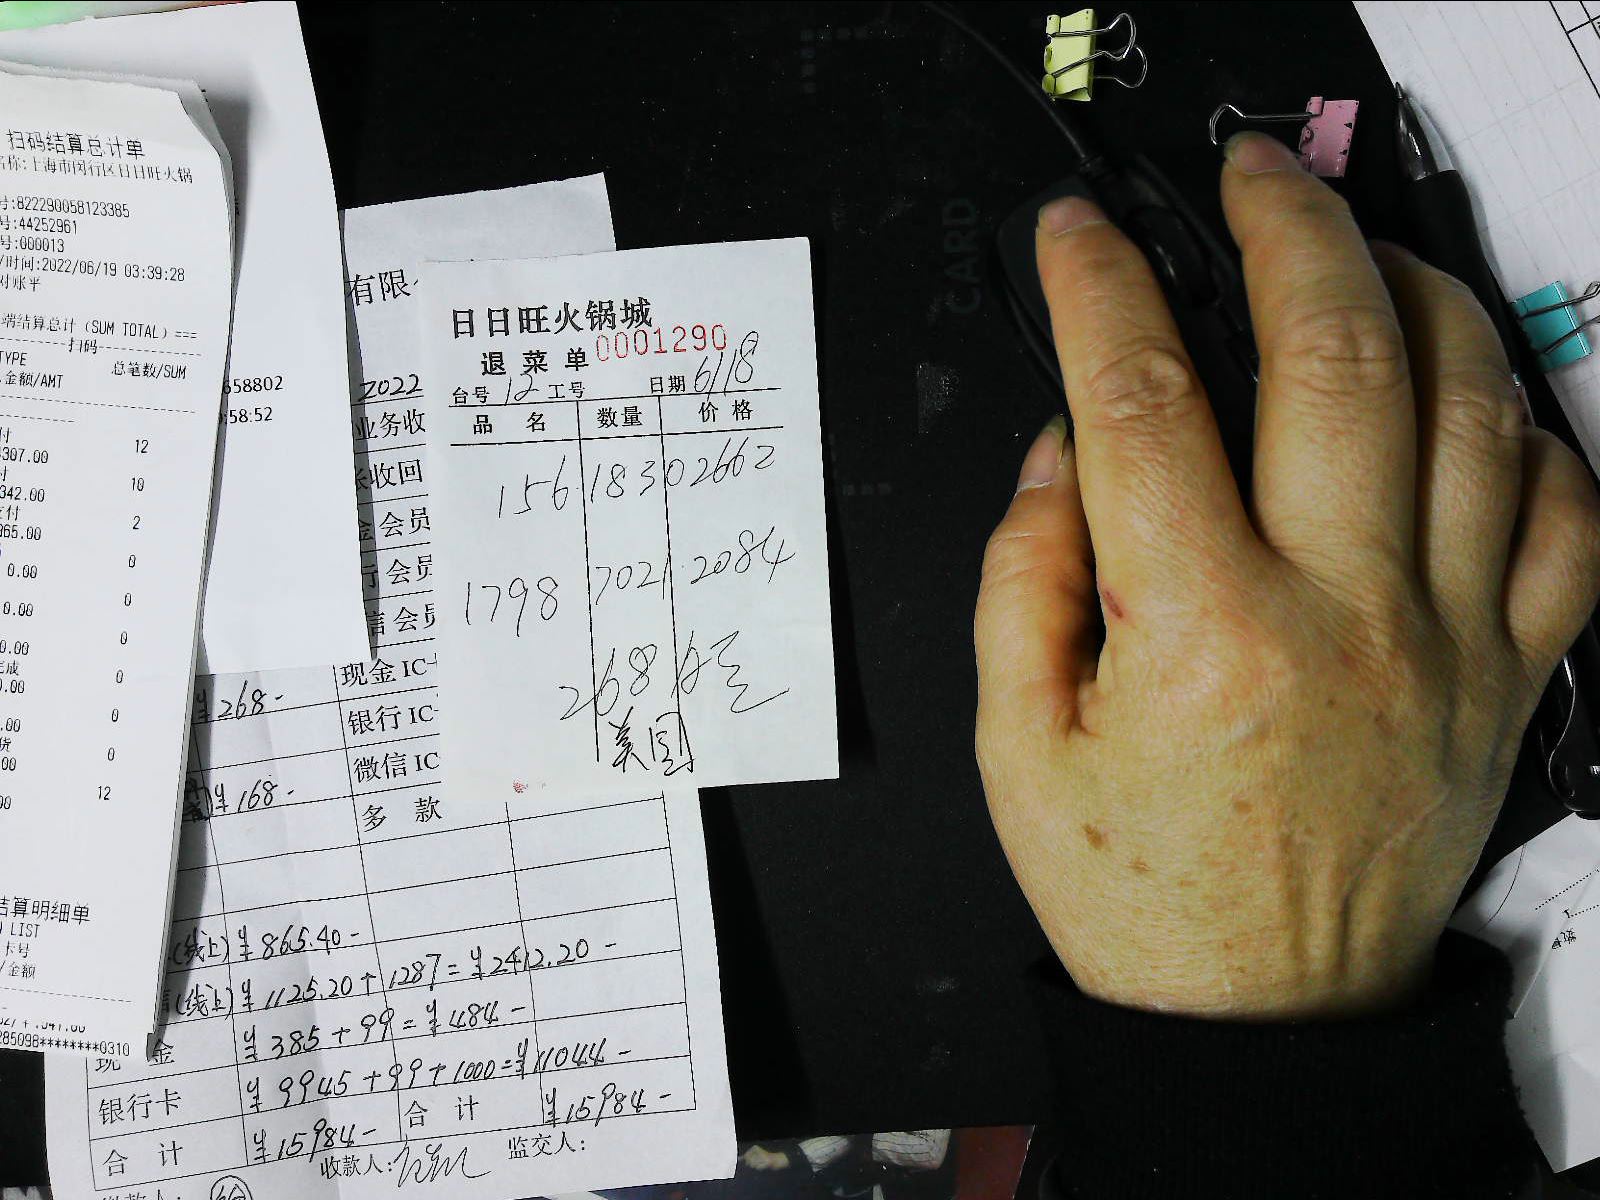 扫码结算总计单
名称:上海市闵行区日日旺火锅
号:822290058123385
号:44252961
号:000013
/时间:2022/06/19 03:39:28
对账平
端结算总计(SUM TOTAL)===
扫码
TYPE 总笔数/SUM
金额/AMT
付 12
307.00
付 10
342.00
支付 2
865.00
0
0.00
0
0.00
0
0.00
完成 0
0.00
0
.00
货 0
.00
12
00
结算明细单
LIST
卡号
/金额
285098********0310
658802
:58:52
有限
2022
业务收
收回
金会员
行会员
信会员
¥268- 现金IC
银行IC
¥168- 微信IC
多 款
(线上) ¥865.40-
信(线上) ¥1125.20+1287=¥2412.20-
现 金 ¥385+99=¥484-
银行卡 ¥9945+99+1000=¥11044-
合 计 ¥15984- 合 计 ¥15984-
收款人: 监交人:
日日旺火锅城
退菜单 0001290
台号 12 工号 日期 6/18
品 名 数量 价 格
156 183 02662
1798 7021 2084
268
美国
CARD